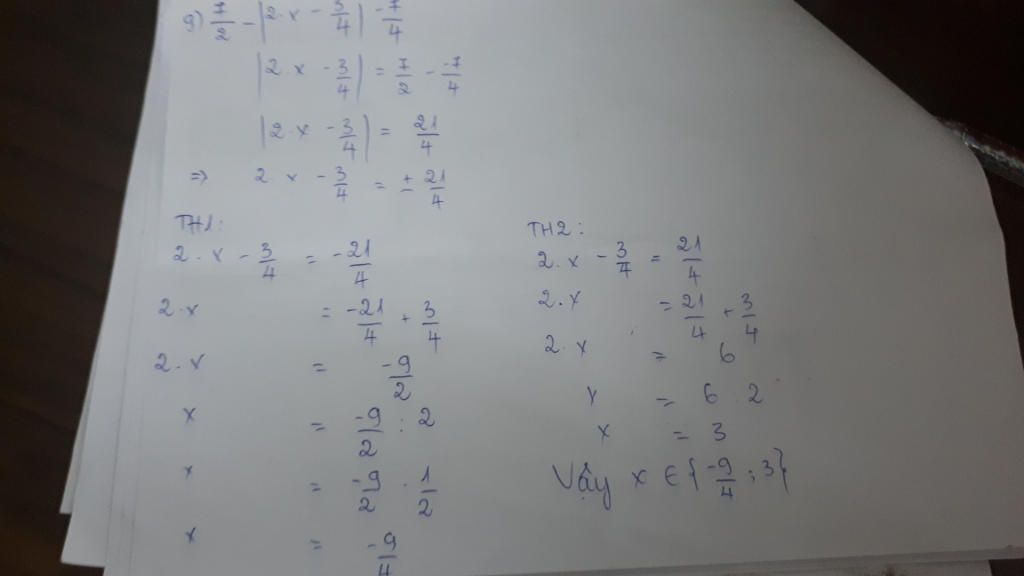 9) 7/2 - |2.x - 3/4| -7/4
|2.x - 3/4| = 7/2 - -7/4
|2.x - 3/4| = 21/4
=> 2 x - 3/4 = ± 21/4
TH1:
2.x - 3/4 = -21/4
2.x = -21/4 + 3/4
2.x = -9/2
x = -9/2 : 2
x = -9/2 . 1/2
x = -9/4
TH2:
2.x - 3/4 = 21/4
2.x = 21/4 + 3/4
2.x = 6
x = 6 : 2
x = 3
Vậy x ∈ {-9/4 ; 3}